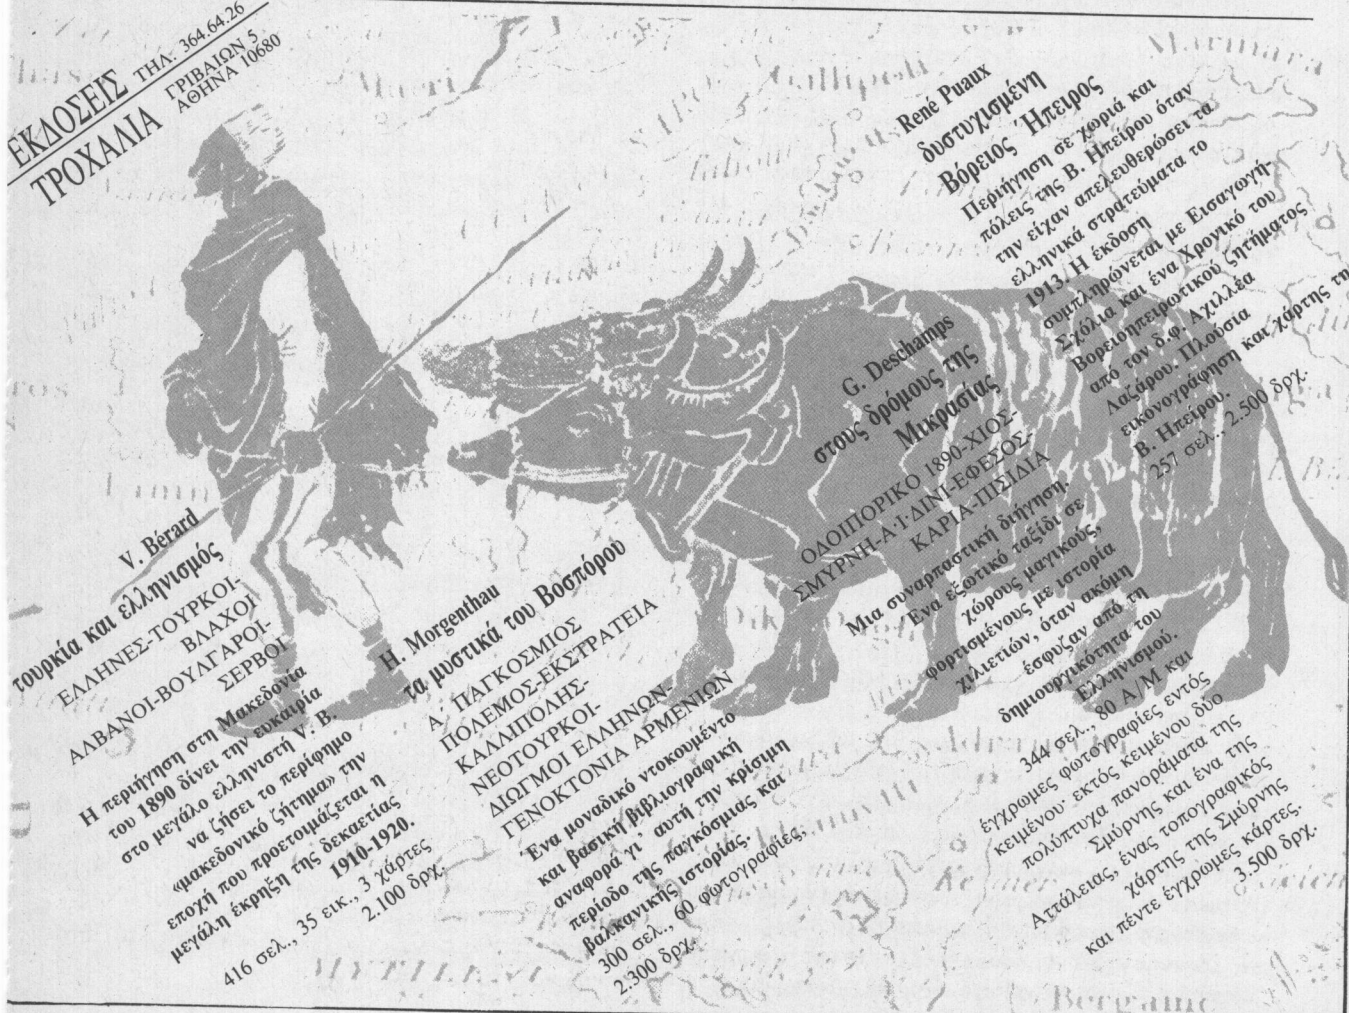 ΕΚΔΟΣΕΙΣ
ΤΡΟΧΑΛΙΑ
ΤΗΛ. 364.64.26
ΓΡΙΒΑΙΩΝ 5
ΑΘΗΝΑ 10680
V. Bérard
τουρκία και ελληνισμός
ΕΛΛΗΝΕΣ-ΤΟΥΡΚΟΙ-
ΒΛΑΧΟΙ
ΑΛΒΑΝΟΙ-ΒΟΥΛΓΑΡΟΙ-
ΣΕΡΒΟΙ
Η περιήγηση στη Μακεδονία
του 1890 δίνει την ευκαιρία
στο μεγάλο ελληνιστή V. B.
να ζήσει το περίφημο
«μακεδονικό ζήτημα» την
εποχή που προετοιμάζεται η
μεγάλη έκρηξη της δεκαετίας
1910-1920.
416 σελ., 35 εικ., 3 χάρτες
2.100 δρχ.
H. Morgenthau
τα μυστικά του Βοσπόρου
Α΄ ΠΑΓΚΟΣΜΙΟΣ
ΠΟΛΕΜΟΣ-ΕΚΣΤΡΑΤΕΙΑ
ΚΑΛΛΙΠΟΛΗΣ-
ΝΕΟΤΟΥΡΚΟΙ-
ΔΙΩΓΜΟΙ ΕΛΛΗΝΩΝ-
ΓΕΝΟΚΤΟΝΙΑ ΑΡΜΕΝΙΩΝ
Ένα μοναδικό ντοκουμέντο
και βασική βιβλιογραφική
αναφορά γι' αυτή την κρίσιμη
περίοδο της παγκόσμιας και
βαλκανικής ιστορίας.
300 σελ., 60 φωτογραφίες,
2.300 δρχ.
G. Deschamps
στους δρόμους της
Μικρασίας
ΟΔΟΙΠΟΡΙΚΟ 1890-ΧΙΟΣ-
ΣΜΥΡΝΗ-Α·Ι·ΔΙΝΙ-ΕΦΕΣΟΣ-
ΚΑΡΙΑ-ΠΙΣΙΔΙΑ
Μια συναρπαστική διήγηση.
Ένα εξωτικό ταξίδι σε
χώρους μαγικούς,
φορτισμένους με ιστορία
χιλιετιών, όταν ακόμη
έσφυζαν από τη
δημιουργικότητα του
Ελληνισμού.
344 σελ., 80 Α/Μ και
έγχρωμες φωτογραφίες εντός
κειμένου· εκτός κειμένου δύο
πολύπτυχα πανοράματα της
Σμύρνης και ένα της
Αττάλειας, ένας τοπογραφικός
χάρτης της Σμύρνης
και πέντε έγχρωμες κάρτες.
3.500 δρχ.
René Puaux
δυστυχισμένη
Βόρειος Ήπειρος
Περιήγηση σε χωριά και
πόλεις της Β. Ηπείρου όταν
την είχαν απελευθερώσει τα
ελληνικά στρατεύματα το
1913. Η έκδοση
συμπληρώνεται με Εισαγωγή-
Σχόλια και ένα Χρονικό του
Βορειοηπειρωτικού ζητήματος
από τον δ.φ. Αχιλλέα
Λαζάρου. Πλούσια
εικονογράφηση και χάρτης τη
Β. Ηπείρου.
257 σελ., 2.500 δρχ.
Gallipoli
Marmara
Bergame